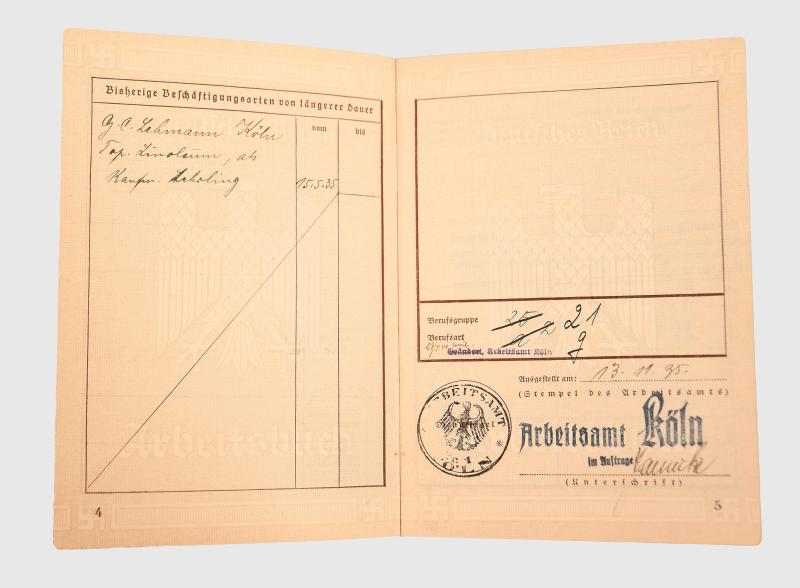 Bisherige Beschäftigungsarten von längerer Dauer
vom bis
G. C. Lehmann Köln
Tap. Linoleum, als
Kaufm. Lehrling 15.5.35
4
Deutsches Reich
Arbeitsbuch
Berufsgruppe 25 21
Berufsart a 2 g
Geändert, Arbeitsamt Köln
Ausgestellt am: 13.11.35.
(Stempel des Arbeitsamts)
ARBEITSAMT
KÖLN
Arbeitsamt Köln
im Auftrage
(Unterschrift)
5